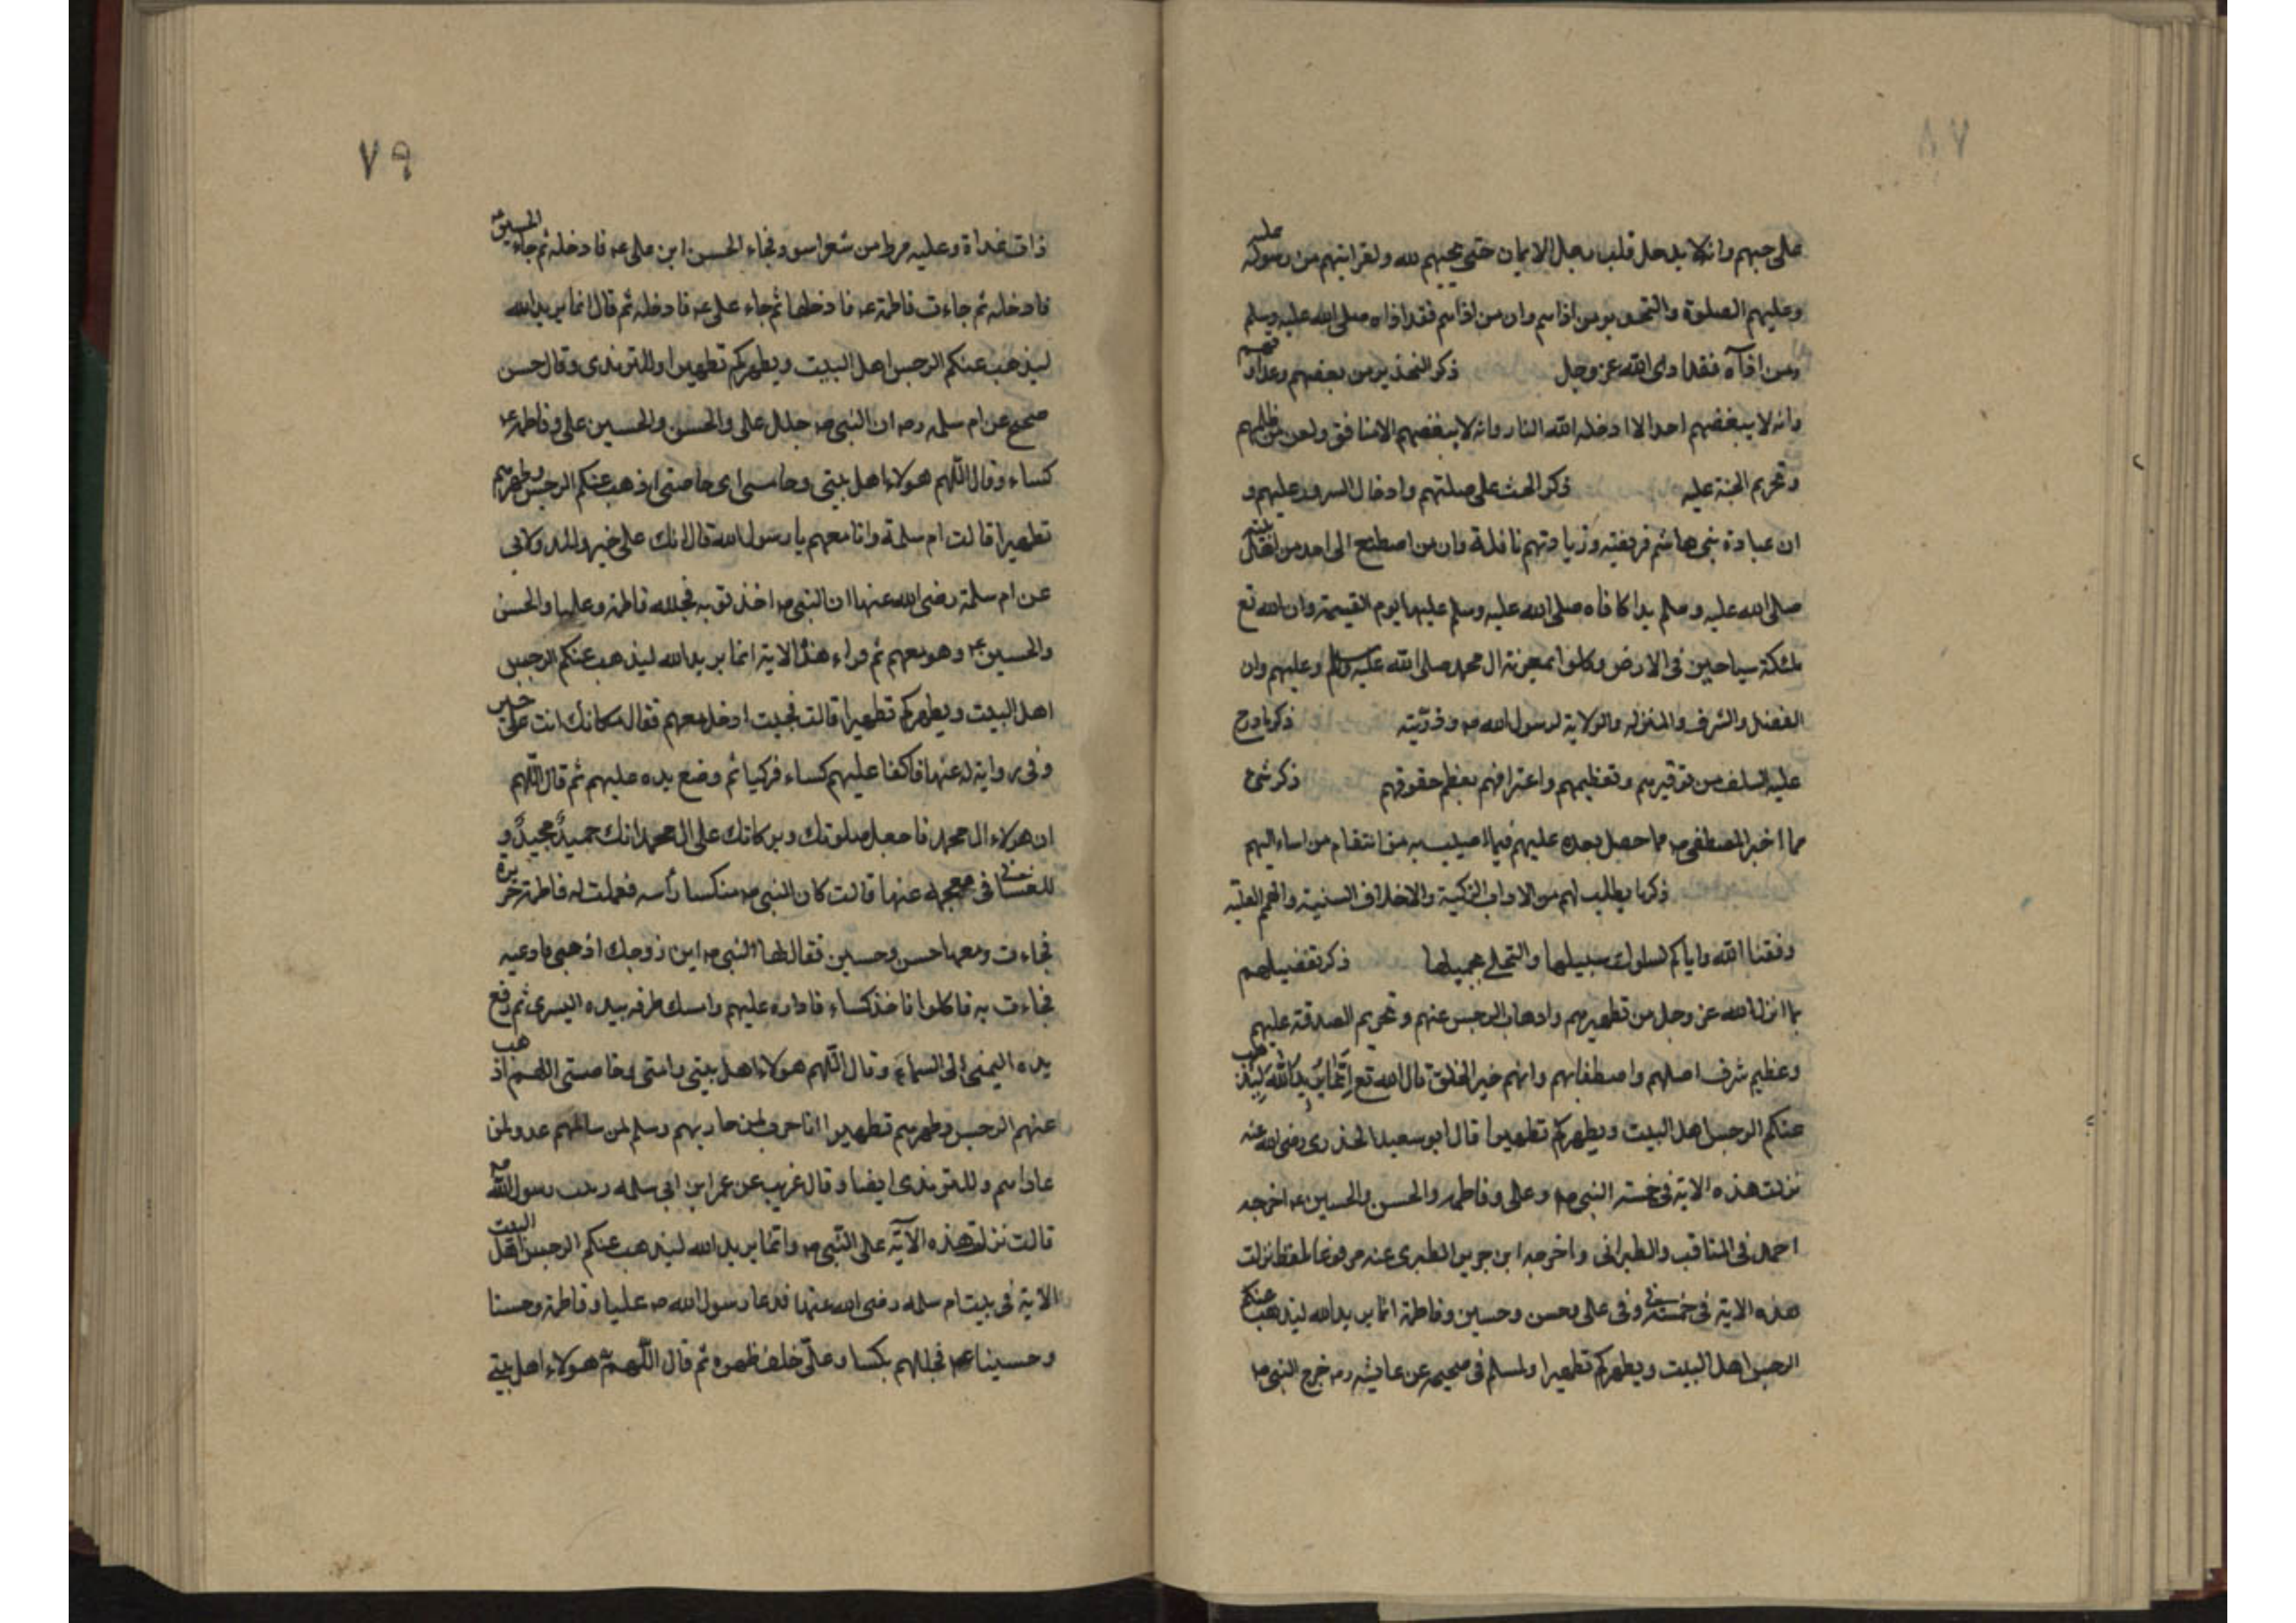 ٧٨
على حبهم وانه لا يدخل قلب رجل الايمان حتى يحبهم لله ولقرابتهم من رسوله عليه
وعليهم الصلوة والتحذير من اذاهم وان من اذاهم فقد اذاه صلى الله عليه وسلم
ومن اذاه فقد اذى الله عز وجل ذكر التحذير من بغضهم وعداوتهم
وانه لا يبغضهم احد الا ادخله الله النار وانه لا يبغضهم الا منافق ولعن من ظلمهم
وتحريم الجنة عليه ذكر الحث على صلتهم وادخال السرور عليهم و
ان عيادة بنى هاشم فريضة وزيارتهم نافلة وان من اصطنع الى احد من اهل بيته
صلى الله عليه وسلم يدا كافاه صلى الله عليه وسلم عليها يوم القيمة وان لله تع
ملئكة سياحين فى الارض وكلوا بمعونة ال محمد صلى الله عليه وسلم وعليهم وان
الفضل والشرف والمنزله والولاية لرسول الله ص وذريته ذكر ما درج
عليه السلف من توقيرهم وتعظيمهم واعترافهم بعظم حقوقهم ذكر شئ
مما اخبر المصطفى ص مما حصل بعده عليهم فيما اصيب به من انتقام من اساء اليهم
ذكر ما يطلب لهم من الاداب الزكية والاخلاق السنية والهمم العلية
وفقنا الله واياكم لسلوك سبيلها والتحلى بجميلها ذكر تفضيلهم
بما انزل الله عز وجل من تطهيرهم واذهاب الرجس عنهم وتحريم الصدقة عليهم
وعظيم شرف اصلهم واصطفائهم وانهم خير الخلق قال الله تع انما يريد الله ليذهب
عنكم الرجس اهل البيت ويطهركم تطهيرا قال ابو سعيد الخدرى رضى الله عنه
نزلت هذه الاية فى خمسة النبى ص وعلى وفاطمه والحسن والحسين ع اخرجه
احمد فى المناقب والطبرانى واخرجه ابن جرير الطبرى عنه مرفوعا بلفظ نزلت
هذه الاية فى خمسة فى وفى على وحسن وحسين وفاطمة انما يريد الله ليذهب عنكم
الرجس اهل البيت ويطهركم تطهيرا ولمسلم فى صحيحه عن عايشه رض خرج النبى ص
٧٩
ذات غداة وعليه مرط من شعر اسود فجاء الحسن ابن على ع فادخله ثم جاء الحسين ع
فادخله ثم جاءت فاطمة ع فادخلها ثم جاء على ع فادخله ثم قال انما يريد الله
ليذهب عنكم الرجس اهل البيت ويطهركم تطهيرا وللترمذى وقال حسن
صحيح عن ام سلمه رض ان النبى ص جلل على والحسن والحسين على وفاطمه ع
كساء وقال اللهم هولاء اهل بيتى وحامتى اى خاصتى اذهب عنكم الرجس وطهرهم
تطهيرا قالت ام سلمة وانا معهم يا رسول الله قال انك على خير
عن ام سلمة رضى الله عنها ان النبى ص اخذ ثوبه فجلله فاطمة وعليا والحسن
والحسين ع وهو معهم ثم قراء هذه الاية انما يريد الله ليذهب عنكم الرجس
اهل البيت ويطهركم تطهيرا قالت فجيت ادخل معهم فقال مكانك انت على خير
وفى رواية له عنها فاكفا عليهم كساء فدكيا ثم وضع يده عليهم ثم قال اللهم
ان هولاء ال محمد فاجعل صلوتك وبركاتك على ال محمد انك حميد مجيد و
للغسانى فى معجمه عنها قالت كان النبى ص منكسا رأسه فعملت له فاطمة خزيرة
فجاءت ومعها حسن وحسين فقال لها النبى ص اين زوجك اذهبى فادعيه
فجاءت به فاكلوا فاخذ كساء فاداره عليهم وامسك طرفه بيده اليسرى ثم رفع
يده اليمنى الى السماء وقال اللهم هولاء اهل بيتى وحامتى وخاصتى اللهم اذهب
عنهم الرجس وطهرهم تطهيرا انا حرب لمن حاربهم وسلم لمن سالمهم عدو لمن
عاداهم وللترمذى ايضا وقال غريب عن عمر ابن ابى سلمه ربيب رسول الله ص
قالت نزلت هذه الآية على النبى ص وانما يريد الله ليذهب عنكم الرجس اهل البيت
الاية فى بيت ام سلمه رضى الله عنها فدعا رسول الله ص عليا وفاطمة وحسنا
وحسينا ع فجللهم بكسا وعلى خلف ظهره ثم قال اللهم هولاء اهل بيتى